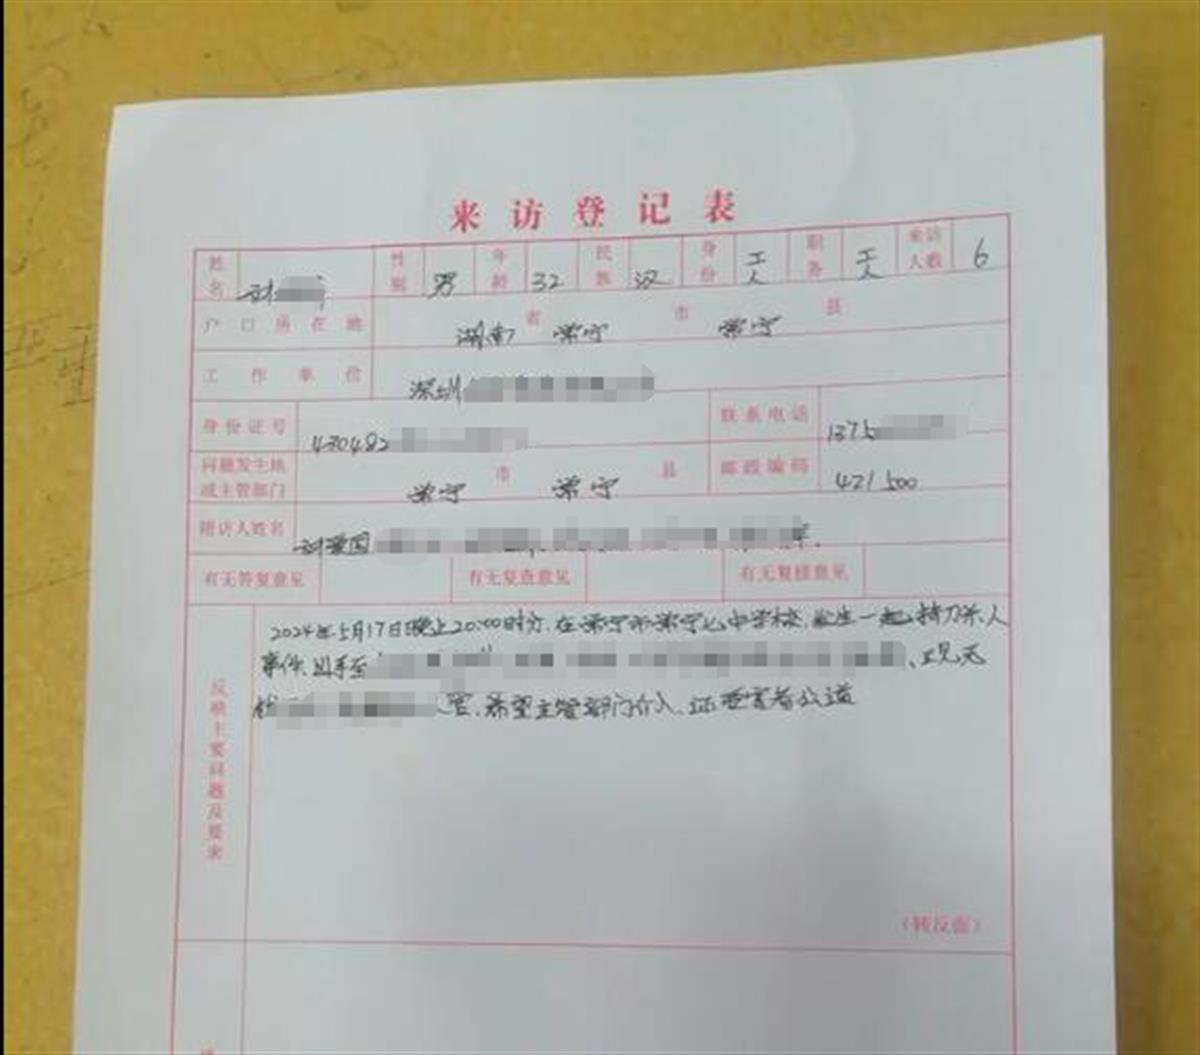 来访登记表
姓名 性别 男 年龄 32 民族 汉 身份 工人 职务 工人 来访人数 6
户口所在地 湖南 省 常宁 市 常宁 县
工作单位 深圳
身份证号 430482 联系电话 1375
问题发生地或主管部门 常宁 市 常宁 县 邮政编码 421500
陪访人姓名
有无答复意见 有无复查意见 有无复核意见
反映主要问题及要求
2024年5月17日晚上20:00时分,在常宁市常宁七中学校,发生一起持刀杀人
事件,
希望主管部门介入,还受害者公道
(转反面)